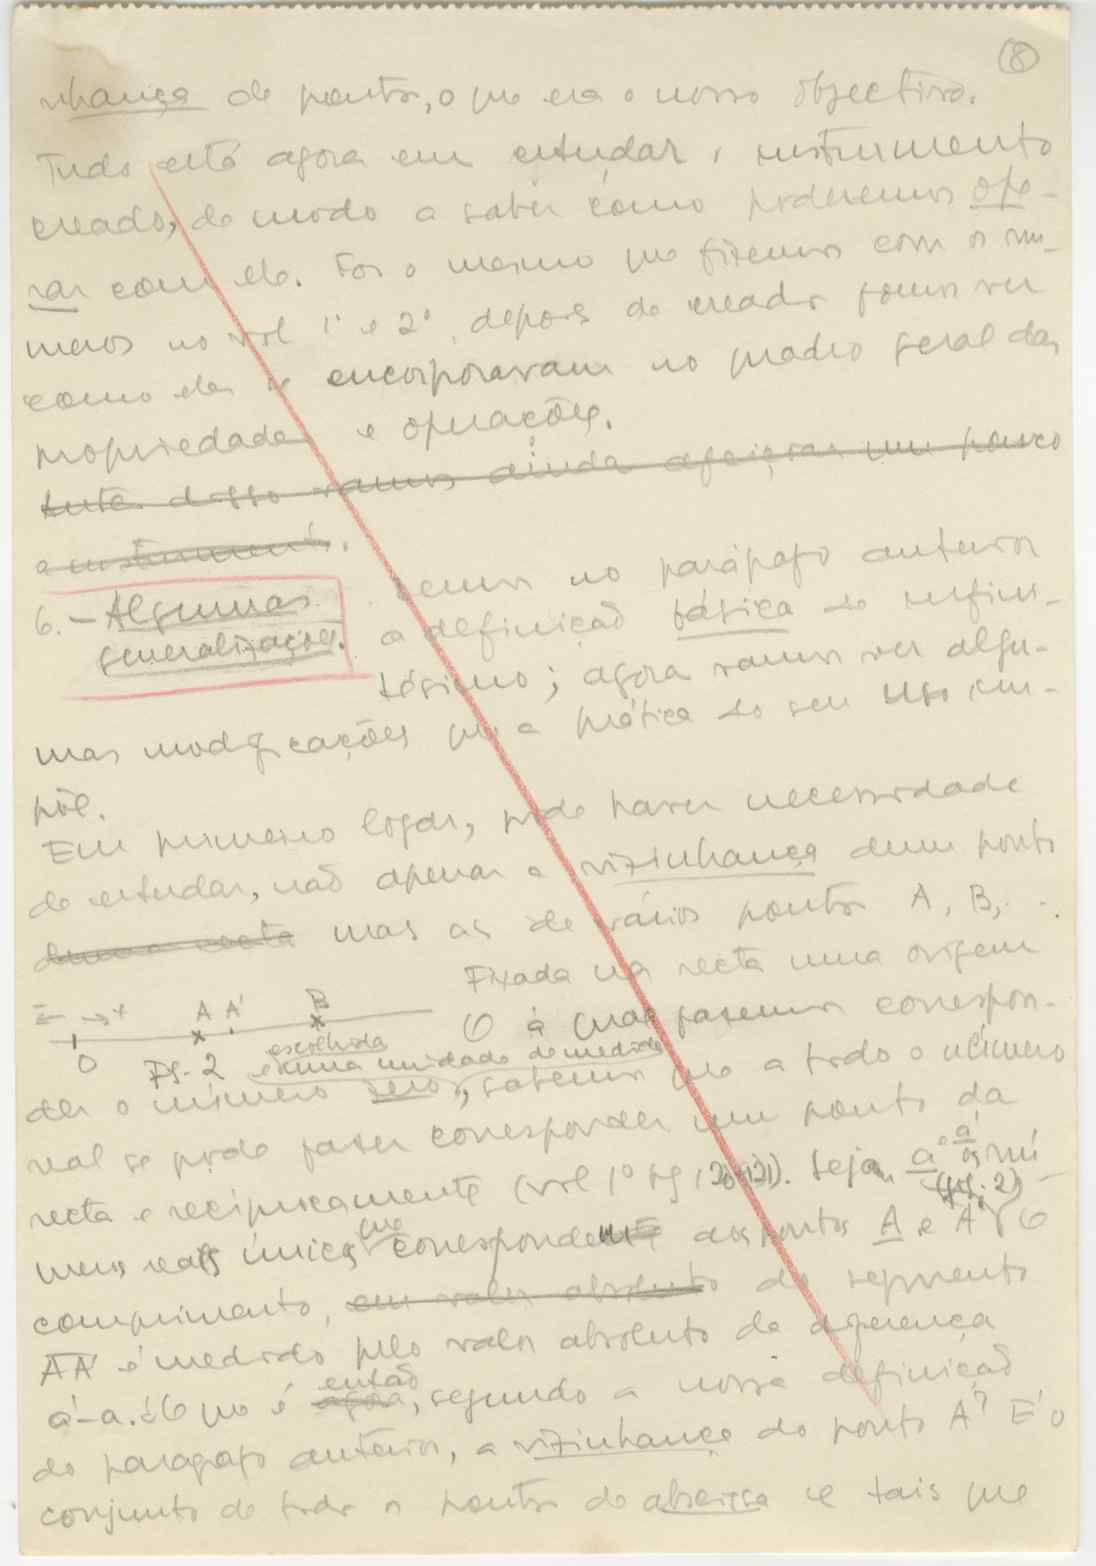 (8)
nhança de pontos, o que era o nosso objectivo.
Tudo está agora em estudar o instrumento
creado, de modo a saber como poderemos ope-
rar com ele. Foi o mesmo que fizemos com os nú-
meros no vol 1º e 2º, depois de creados fomos ver
como eles se encorporavam no quadro geral das
propriedades e operações.
Antes disso vamos ainda afeiçoar um pouco
o instrumento.
6. - Algumas
generalizações.
Demos no parágrafo anterior
a definição básica de infini-
tésimo; agora vamos ver algu-
mas modificações que a prática do seu uso im-
põe.
Em primeiro logar, pode haver necessidade
de estudar, não apenas a vizinhança dum ponto
duma recta mas as de vários pontos A, B, ...
Fixada na recta uma origem
→ + A A' B
O à qual fazemos correspon-
O Fig. 2
escolhida
e uma unidade de medida
der o número zero, sabemos que a todo o número
real se pode fazer corresponder um ponto da
recta e reciprocamente (vol 1º pg ). Sejam a e a' os nú-
(fig. 2)
meros reais únicos que correspondem aos pontos A e A'. O
comprimento, em valor absoluto do segmento
AA' é medido pelo valor absoluto da diferença
a'-a. O que é então agora, segundo a nossa definição
do paragrafo anterior, a vizinhança do ponto A? É o
conjunto de todos os pontos de abscissa x tais que